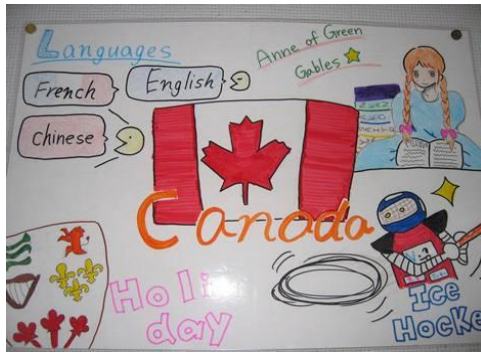 Languages
French
English
Chinese
Anne of Green
Gables
Canada
Holi
day
Ice
Hocke